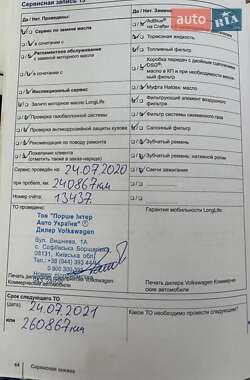 Сервисная запись 13
Да / Нет. Проведены:
Сервис по замене масла
в сочетании с
Регламентное обслуживание
с заменой моторного масла
в сочетании с
Инспекционный сервис
Залито моторное масло LongLife
Проверка газобаллонной системы
Проверка антикоррозийной защиты кузова
Рекомендация по поводу ремонта
Пожелания клиента
(отметить также в заказ-наряде)
Сервис проведён на: 24.07.2020
при пробеге, км: 240867 км
Номер счёта: 13437.
ТО проведено:
Тов "Порше Інтер
Авто Україна"
Дилер Volkswagen
вул. Виднева, 1А
с. Софіївська Борщагівка,
08131, Київська обл.
Tel. +38 (044) 393 44
0 800 300
Срок следующего ТО
дата: 24.07.2021
или 260867 км
64 Сервисная книжка
Да / Нет. Заменены:
AdBlue®
на Crafter
Тормозная жидкость
Топливный фильтр
Коробка передач с двойным сцеплением
DSG®:
масло в КП и при необходимости масляный фильтр
Муфта Haldex: масло
Фильтрующий элемент воздушного
фильтра
Салонный фильтр
Зубчатый ремень
Зубчатый ремень: натяжной ролик
Свечи зажигания
Гарантия мобильности LongLife
Печать дилера Volkswagen Коммерческие автомобили
Какое ТО необходимо провести следующим?
AUTO.RIA.com